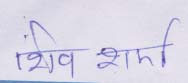 शिव शर्मा